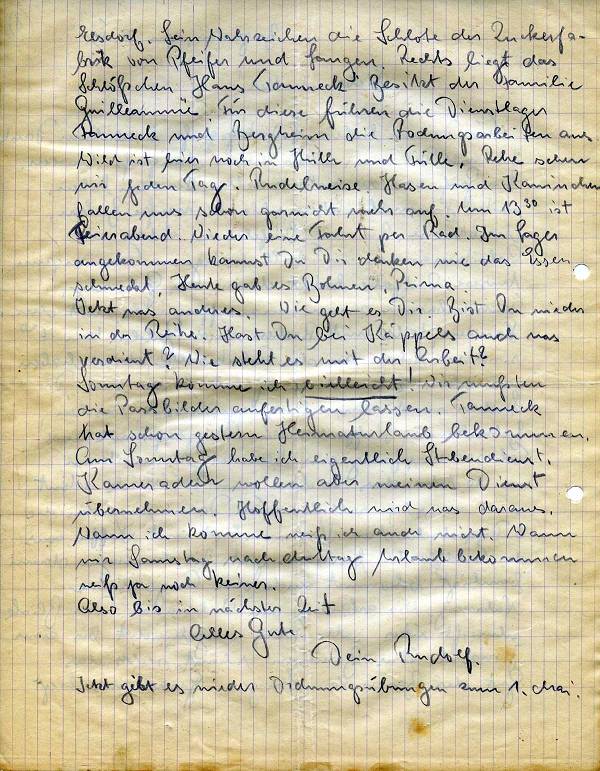 Elsdorf. Sein Wahrzeichen die Schlote der Zuckerfa-
brik von Pfeifer und Langen. Rechts liegt das
Schlößchen "Haus Tanneck" Besitz der Familie
Guilleaume. Für diese führen die Dienstlager
Tanneck und Bergheim die Rodungsarbeiten aus
Wild ist hier noch in Hülle und Fülle. Rehe sehen
wir jeden Tag. Rudelweise. Hasen und Kaninchen
fallen uns schon garnicht mehr auf. Um 13³⁰ ist
Feierabend. Wieder eine Fahrt per Rad. Im Lager
angekommen kannst Du Dir denken wie das Essen
schmeckt. Heute gab es Bohnen. Prima.
Jetzt was anderes. Wie geht es Dir. Bist Du wieder
in der Reihe. Hast Du bei Käppels auch was
verdient? Wie steht es mit der Arbeit?
Sonntag komme ich vielleicht! Wir mußten
die Passbilder anfertigen lassen. Tanneck
hat schon gestern Heimaturlaub bekommen.
Am Sonntag habe ich eigentlich Stubendienst.
Kameraden wollen aber meinen Dienst
übernehmen. Hoffentlich wird was daraus.
Wann ich komme weiß ich auch nicht. Wann
wir Samstag nachmittag Urlaub bekommen
weiß ja noch keiner.
Also bis in nächster Zeit
Alles Gute
Dein Rudolf.
Jetzt gibt es wieder Ordnungsübungen zum 1. Mai.